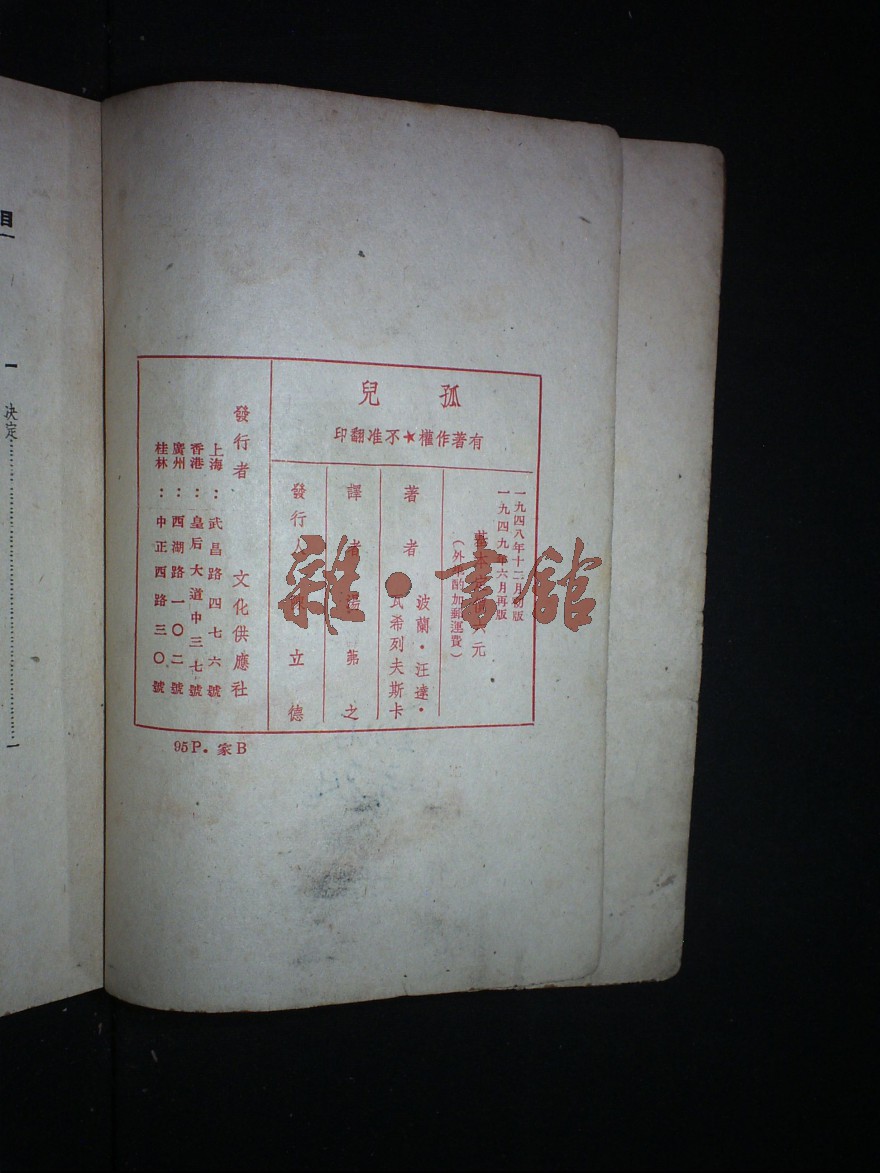 孤兒
有著作權★不准翻印
一九四八年十二月初版
一九四九年六月再版
元
(外埠酌加郵運費)
著者
波蘭·汪達·
瓦希列夫斯卡
譯者
弗之
發行人
立德
發行者 文化供應社
上海:武昌路四七六號
香港:皇后大道中三七號
廣州:西湖路一〇二號
桂林:中正西路三〇號
95P. 家B
目
一 決定……一
雜·書館